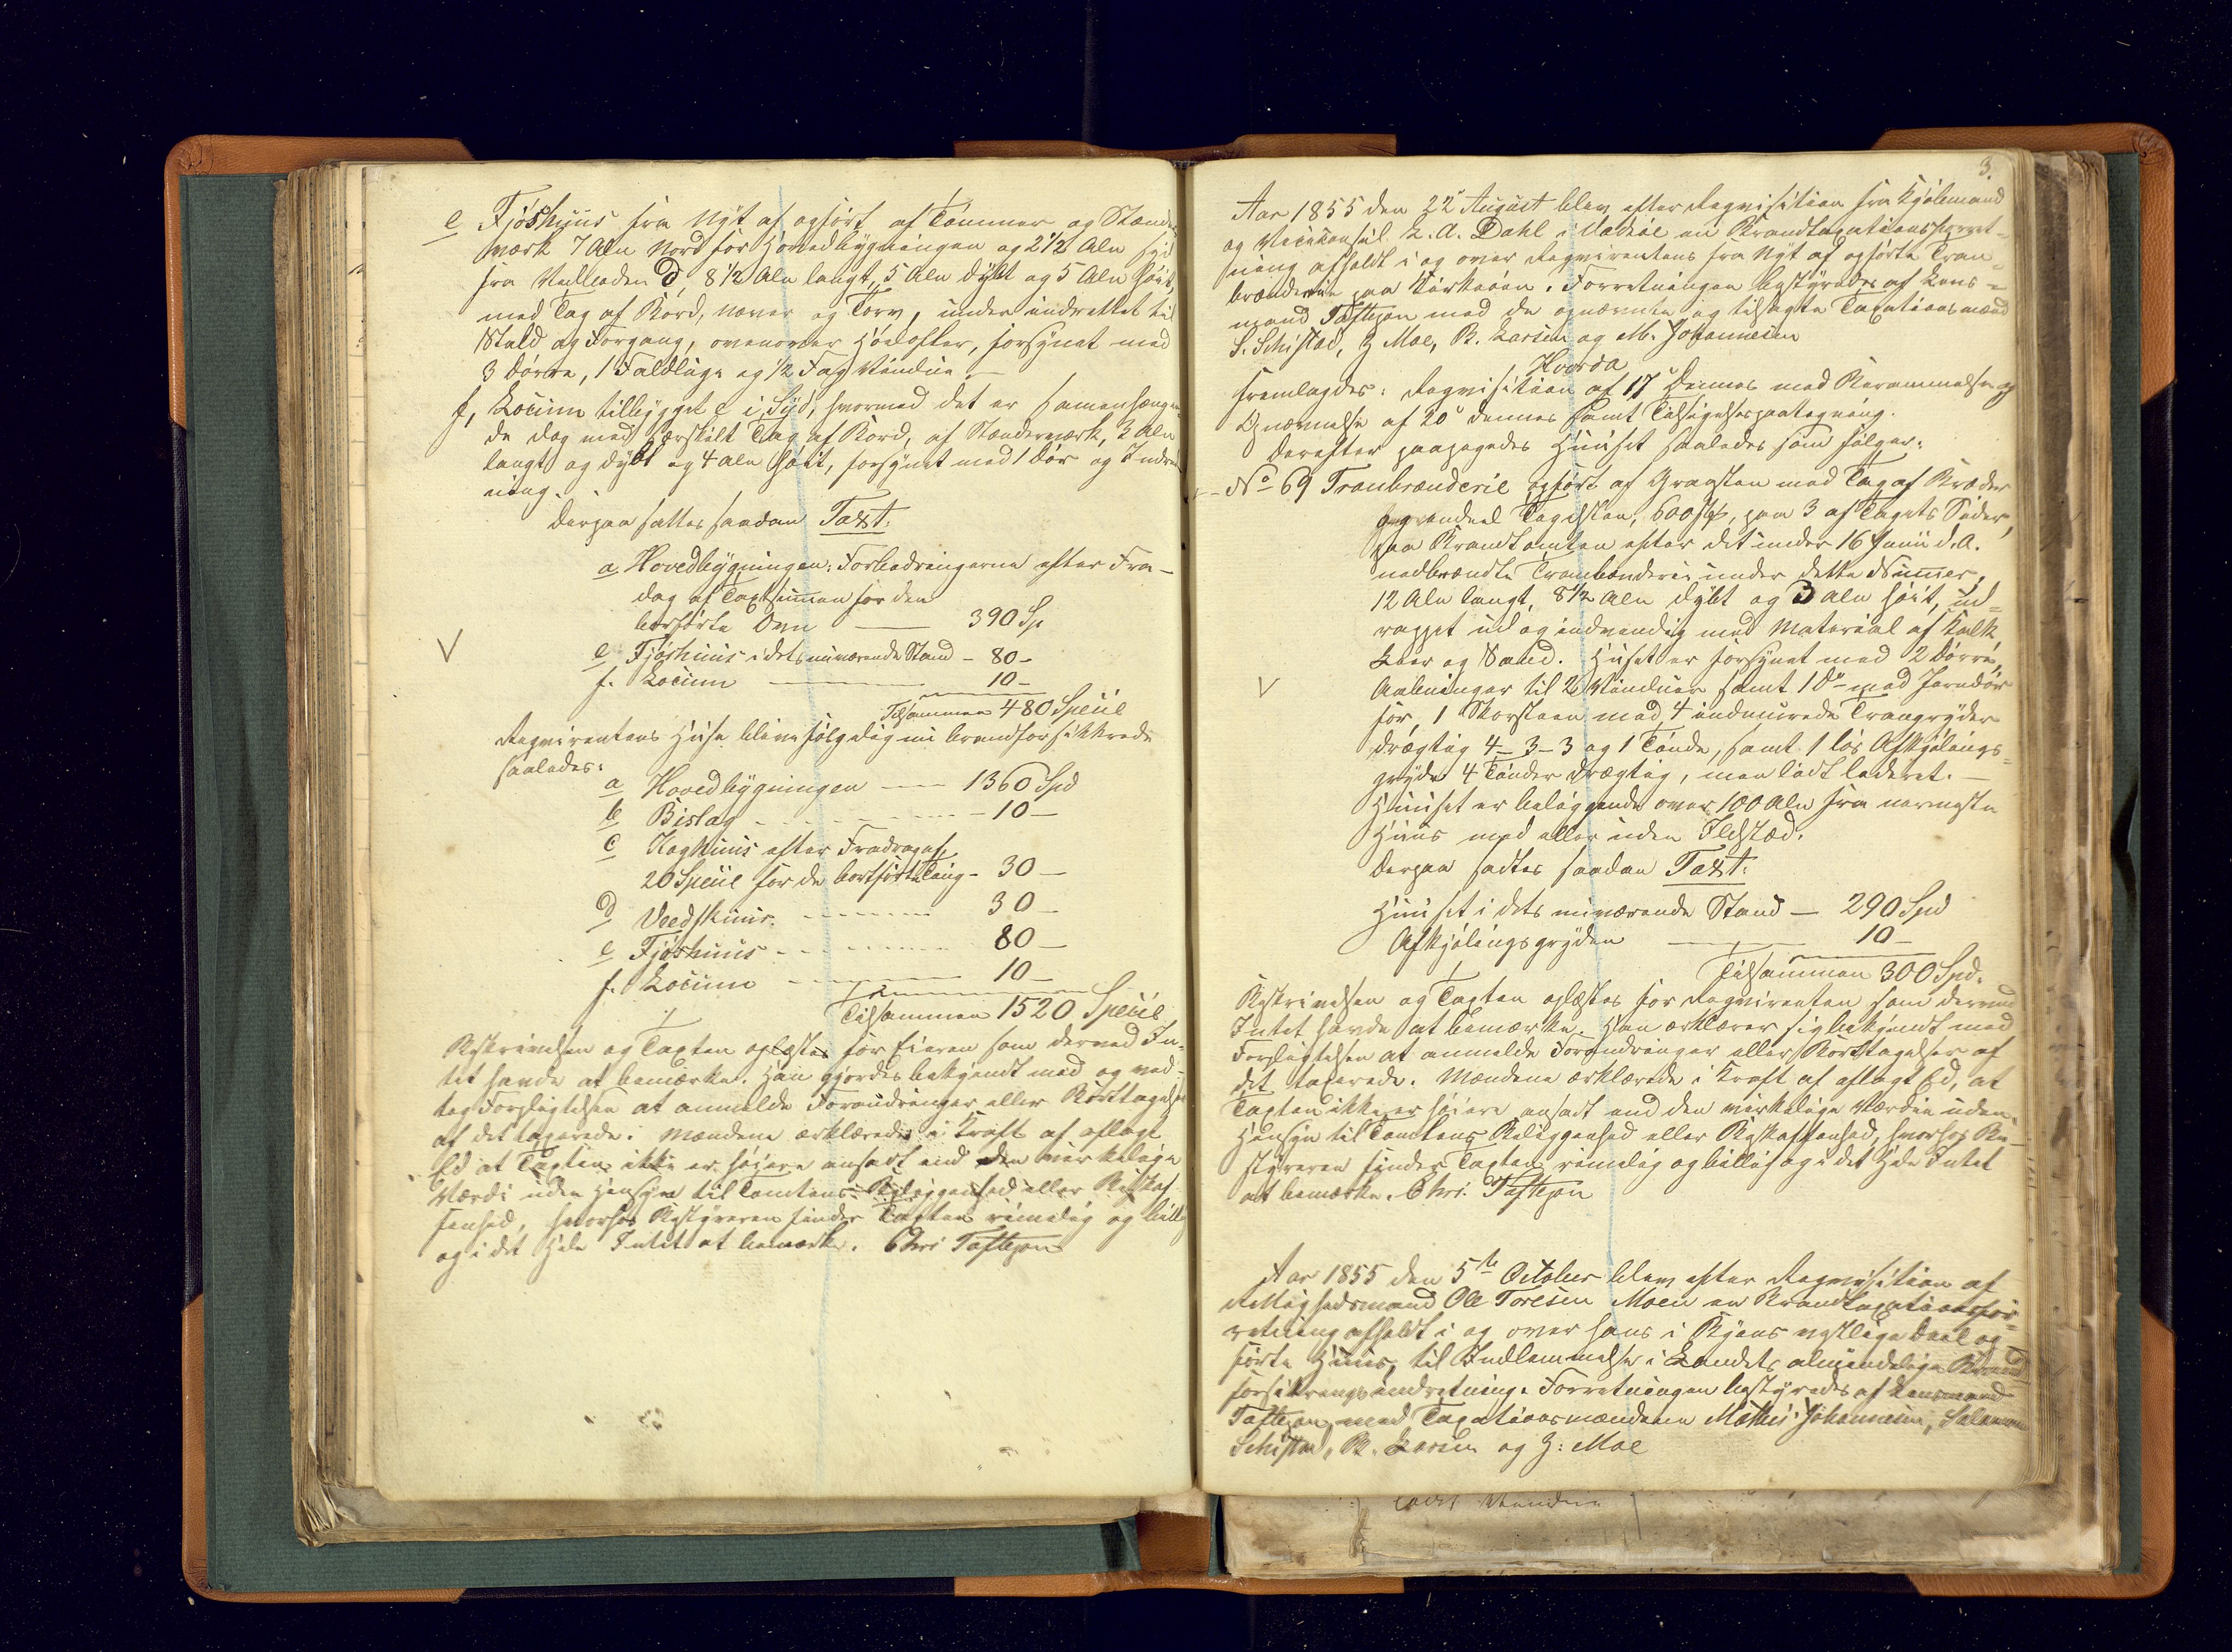 e Fjøshuus fra Nyt af opført af Tømmer og Stænder-
værk 7 Alen Nord for Hovedbygningen og 2 1/2 Alen Syd
fra Vedboden d, 8 1/2 Alen langt, 5 Alen dybt og 5 Alen høit,
med Tag af Bord, næver og Torv, under indrettet til
Stald og Forgang, ovenover Høelofter, forsynet med
3 Dørre, 1 Faldluge og 1/2 Fag Vindue.—
f, Locum tilbygget e i Syd, hvormed det er sammenhængen-
de dog med særskilt Tag af Bord, af Stænderværk, 3 Alen
langt og dybt og 4 Alen høit, forsynet med 1 Dør og Indret
ning.
Derpaa sattes saadan Taxt:
a, Hovedbygningen: Forbedringerne efter Fra-
drag af Taxtsummen for den
bortførte Ovn — 390 Sp
e Fjøshuus i dets nuværende Stand - 80 -
f. Locum — 10 -
Tilsammen 480 Specie
Reqvirentens Huse blive følgelig nu brandforsikkrede
saaledes:
a Hovedbygningen — 1360 Spd
b Bislag - - - 10 —
c Kaghuus efter Fradrag af
20 Specie for de bortførte Ting - 30 —
d Veedskuur. - - - 30 —
e Fjøshuus - - - 80 —
f. Locum - - - 10 —
Tilsammen 1520 Specie
Beskrivelsen og Taxten oplæstes for Eieren som derved In-
tet havde at bemærke. Han gjordes bekjendt med og ved-
tog Forpligtelsen at anmelde Forandringer eller Borttagelse
af det taxerede. Mændene erklærede i Kraft af aflagt
Ed at Taxten ikke er høiere ansadt end den virkelige
Værdi uden Hensyn til Tomtens Beliggenhed eller Beskaf-
fenhed, hvorhos Bestyreren finder Taxten rimelig og billig
og i det Hele Intet at bemærke. Chr. Taftezon
3.
Aar 1855 den 22de August blev efter Reqvisition fra Kjøbmand
og Viceconsul L. A. Dahl i Vadsøe en Brandtaxationsforret-
ning afholdt i og over Reqvirentens fra Nyt af opførte Tran-
brænderie paa Kirkeøen. Forretningen bestyredes af Lens-
mand Taftezon med de opnævnte og tilsagte Taxationsmænd
S. Schistad, Z Moe, R. Larsen og M. Johannesen
Hvorda
fremlagdes: Reqvisition af 17de Dennes med Berammelse og
Opnævnelse af 20de dennes samt Tilsigelsespaategning.
Derefter paapegedes Huuset saaledes som følger:
No 69 Tranbrænderie opført af Graasten med Tag af Bræder
og endeel Tagsten, 600 Stk, paa 3 af Tagets Sider,
paa Brandtomten efter det under 16 Junii d. A.
nedbrændte Tranbrænderie under dette Nummer,
12 Alen langt, 8 1/2 Alen dybt og 3 Alen høit, ud-
rappet ud og indvendig med Material af Kalk,
Leer og Sand. Huset er forsynet med 2 Dørre,
Aabninger til 2 Vinduer samt 1 Do med Jerndør
for, 1 Skorsteen med 4 indmurede Trangryder
drægtig 4 - 3 - 3 og 1 Tønde, samt 1 løs Afkjølings-
gryde 4 Tønder drægtig, men lidt laderet.—
Huuset er beliggende over 100 Alen fra nærmeste
Huus med eller uden Ildsted.
Derpaa sadtes saadan Taxt:
Huuset i dets nuværende Stand — 290 Spd
Afkjølingsgryden — 10 —
Tilsammen 300 Spd.
Beskrivelsen og Taxten oplæstes for Reqvirenten som derved
Intet havde at bemærke. Han erklærer sig bekjendt med
Forpligtelsen at anmelde Forandringer eller Borttagelser af
det taxerede. Mændene erklærede i Kraft af aflagt Ed, at
Taxten ikke er høiere ansadt end den virkelige Værdie uden
Hensyn til Tomtens Beliggenhed eller Beskaffenhed, hvorhos Be-
styreren finder Taxten rimelig og billig og i det Hele Intet
at bemærke. Chr. Taftezon
Aar 1855 den 5te October blev efter Reqvisition af
Rettighedsmand Ole Toresen Moen en Brandtaxationsfor-
retning afholdt i og over hans i Byens vestlige Deel op-
førte Huus, til Indlemmelse i Landets almindelige Brand-
forsikringsindretning. Forretningen bestyredes af Lensmand
Taftezon med Taxationsmændene Mathis Johannesen, Salamon
Schistad, R. Larsen og Z: Moe